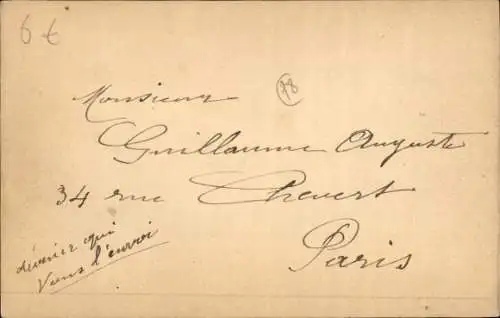 6 €
78
Monsieur
Guillaume Auguste
34 rue Chevert
Paris
qui
vous l'envoi